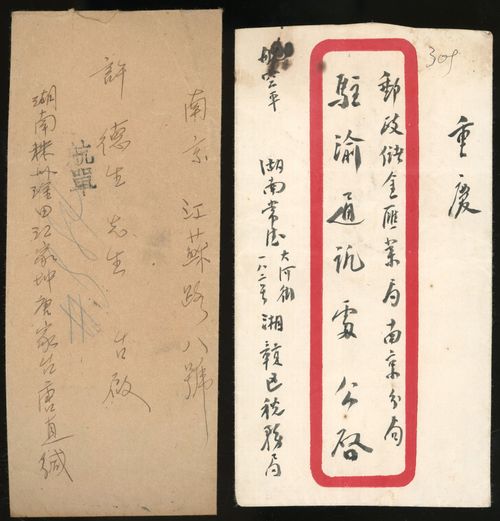 南京 江蘇路八號
許德生先生 台啟
航單
湖南株州瑾田江家坤唐家台唐直緘
309
重慶
郵政儲金匯業局南京分局
駐渝通訊處公啓
湖南常德大河街
一八二號湘贛區稅務局